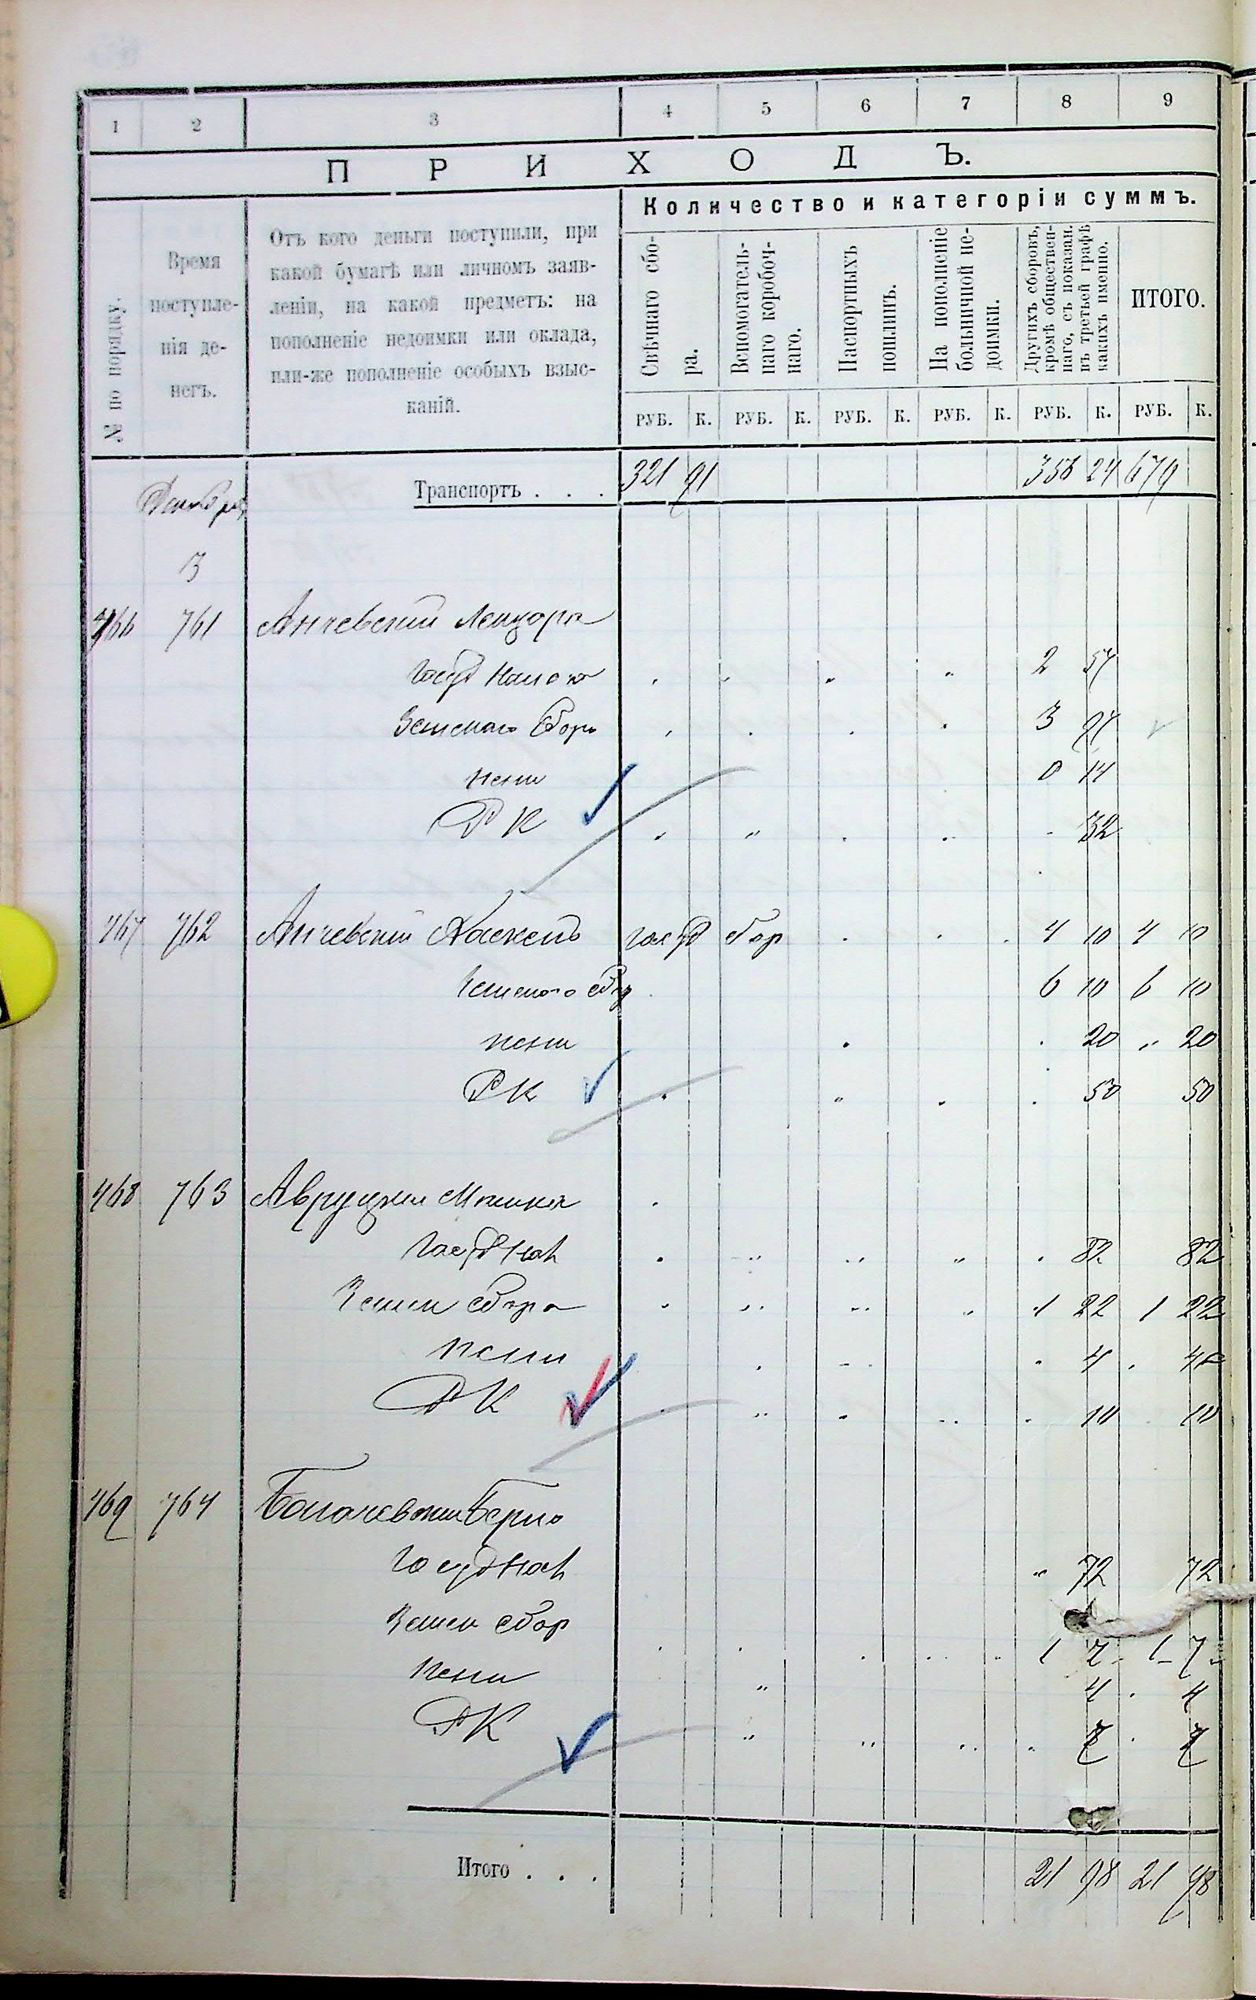 1 2 3 4 5 6 7 8 9
ПРИХОДЪ.
№ по порядку.
Время поступле-
нія де-
негъ.
Отъ кого деньги поступили, при
какой бумагѣ или личномъ заяв-
леніи, на какой предметъ: на
пополненіе недоимки или оклада,
или-же пополненіе особыхъ взыс-
каній.
Количество и категоріи суммъ.
Свѣчнаго сбо-
ра.
Вспомогатель-
наго коробоч-
наго.
Паспортныхъ
пошлинъ.
На пополненіе
больничной не-
доимки.
Другихъ сборовъ,
кромѣ обществен-
наго, съ показан.
въ третьей графѣ
какихъ именно.
ИТОГО.
РУБ. К. РУБ. К. РУБ. К. РУБ. К. РУБ. К. РУБ. К.
Транспортъ . . . 321 91 24 679
Декабря
3
761 Анчевский
Госуд 2 57
Земскаго сбора 3
пени 0 14
РК 32
467 762 Анчевский госуд сбор 4 10 4 10
Земского сбор 6 10 6 10
пени 20 20
РК 50 50
468 763
Госуд Нал 82 82
Земск сбора 1 22 1 22
пени 4 4
РК 10 10
469 764
Госуд Нал 72 72
Земск сбор 1 7 1 7
пени 4 4
РК
Итого . . . 21 98 21 98